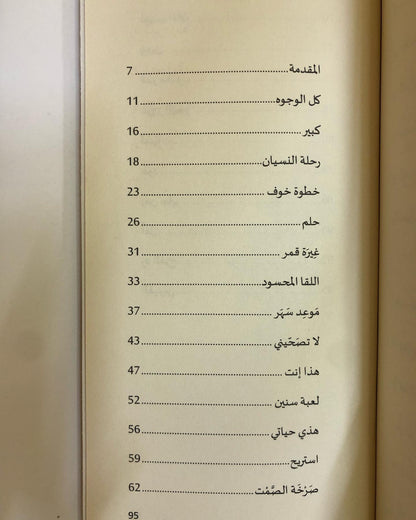 المقدمة............................................7
كل الوجوه.......................................11
كبير................................................16
رحلة النسيان...................................18
خطوة خوف ....................................23
حلم ...............................................26
غِيرَة قمر .......................................31
اللقا المحسود..................................33
مَوعِد سَهَر .....................................37
لا تصَحّيني ....................................43
هذا إنت .........................................47
لعبة سنين ......................................52
هذي حياتي .....................................56
استريح ..........................................59
صَرْخَة الصَّمْت................................62
95